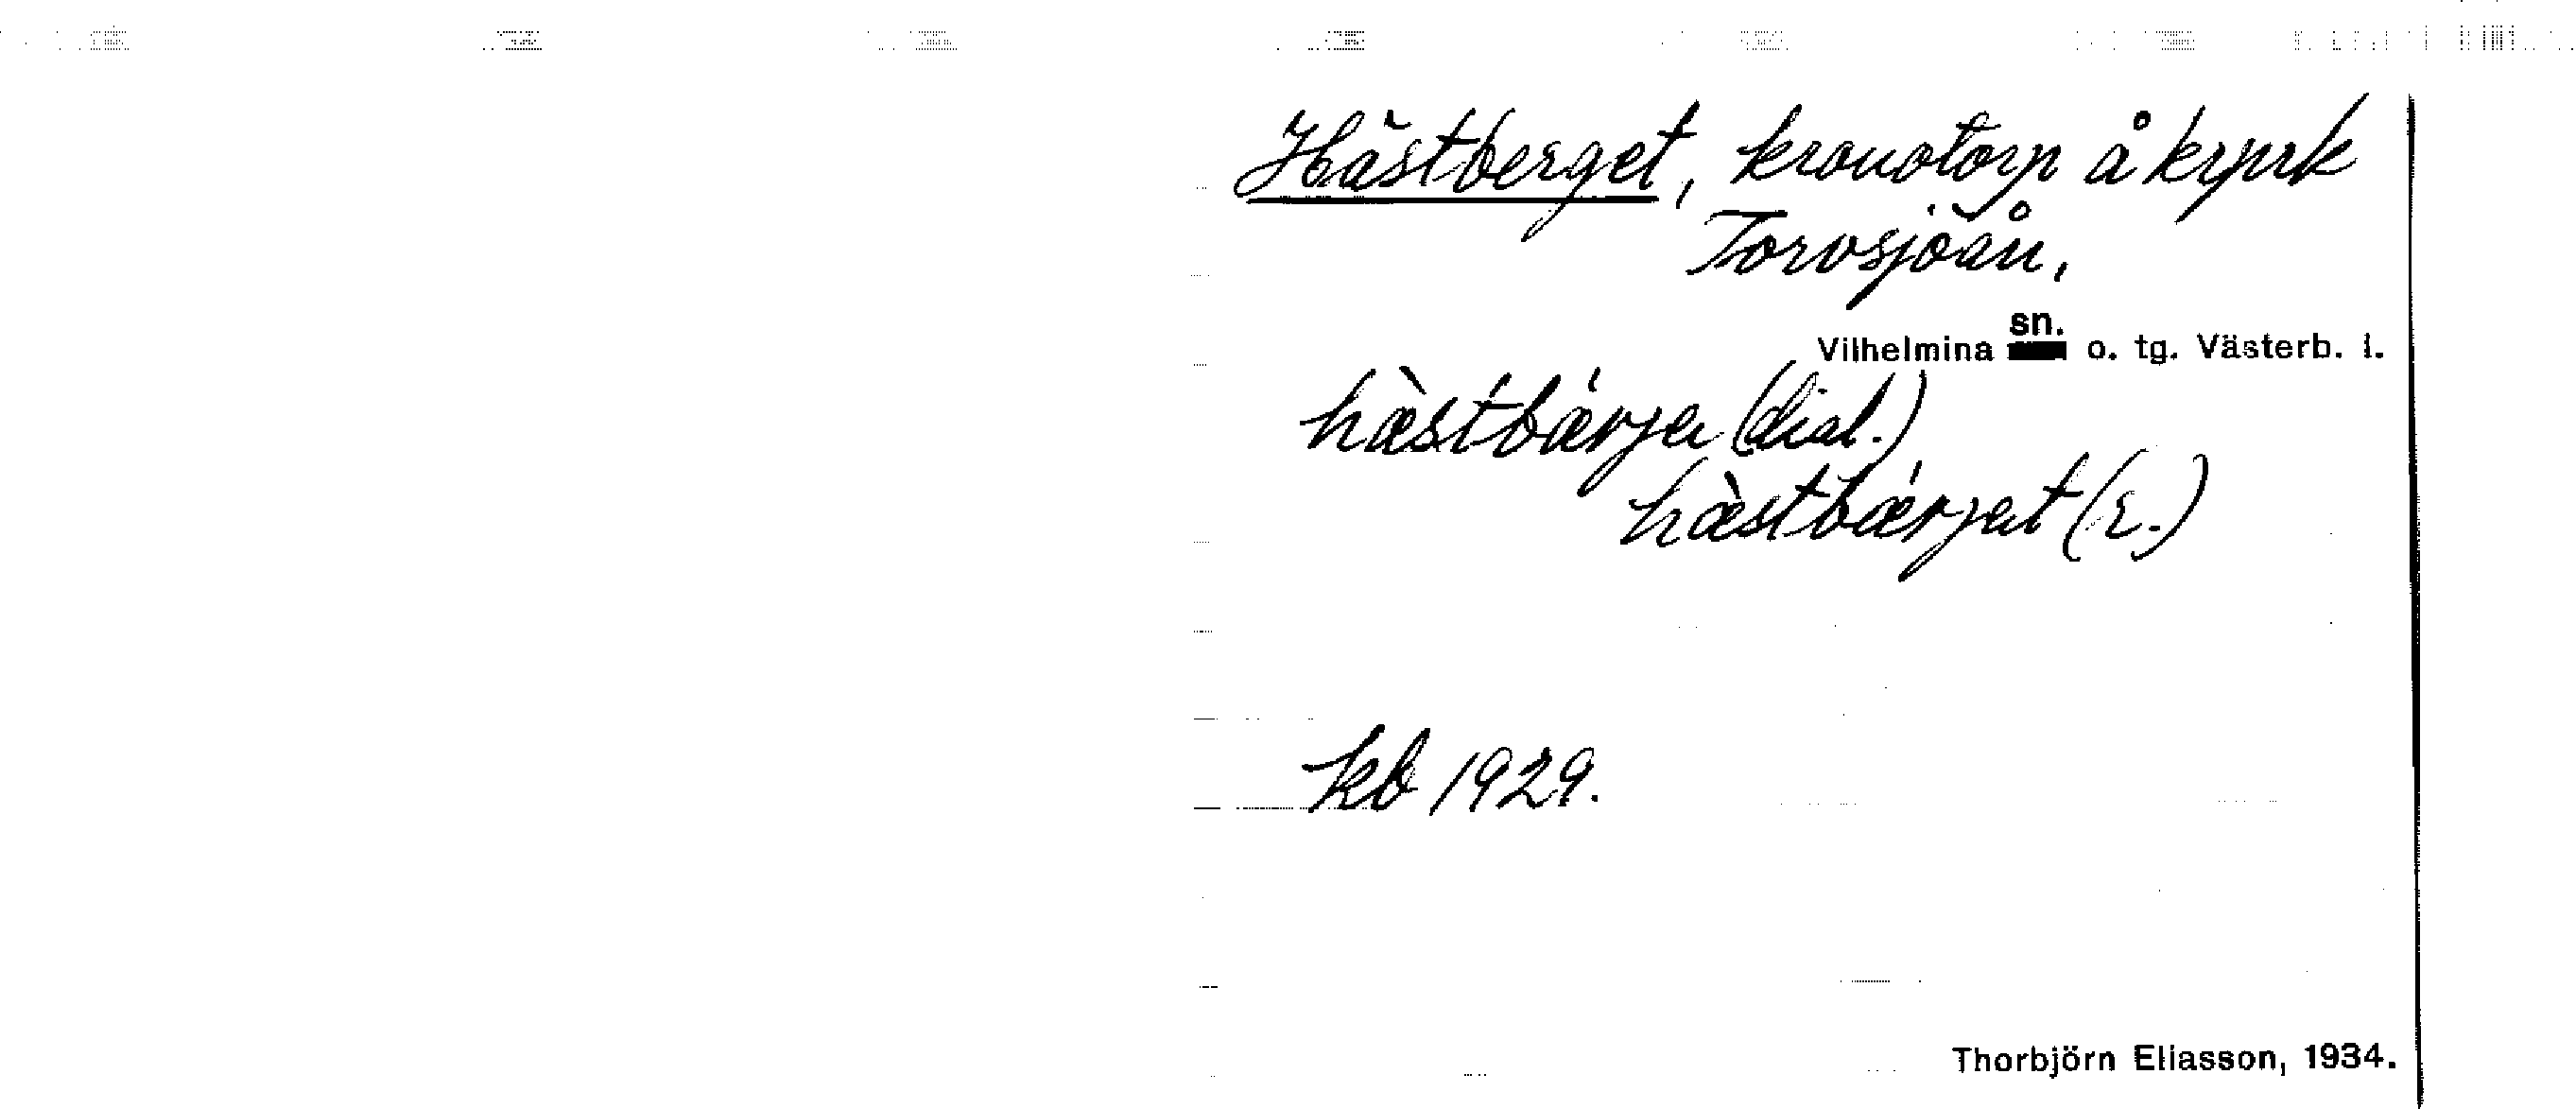 Hästberget, kronotorp å kyrk
Torvsjöån,
Vilhelmina sn. o. tg. Västerb. l.
hæ̀stbǽrjа (dial.)
hæ̀stbǽrjat (r.)
kb 1929.
Thorbjörn Eliasson, 1934.